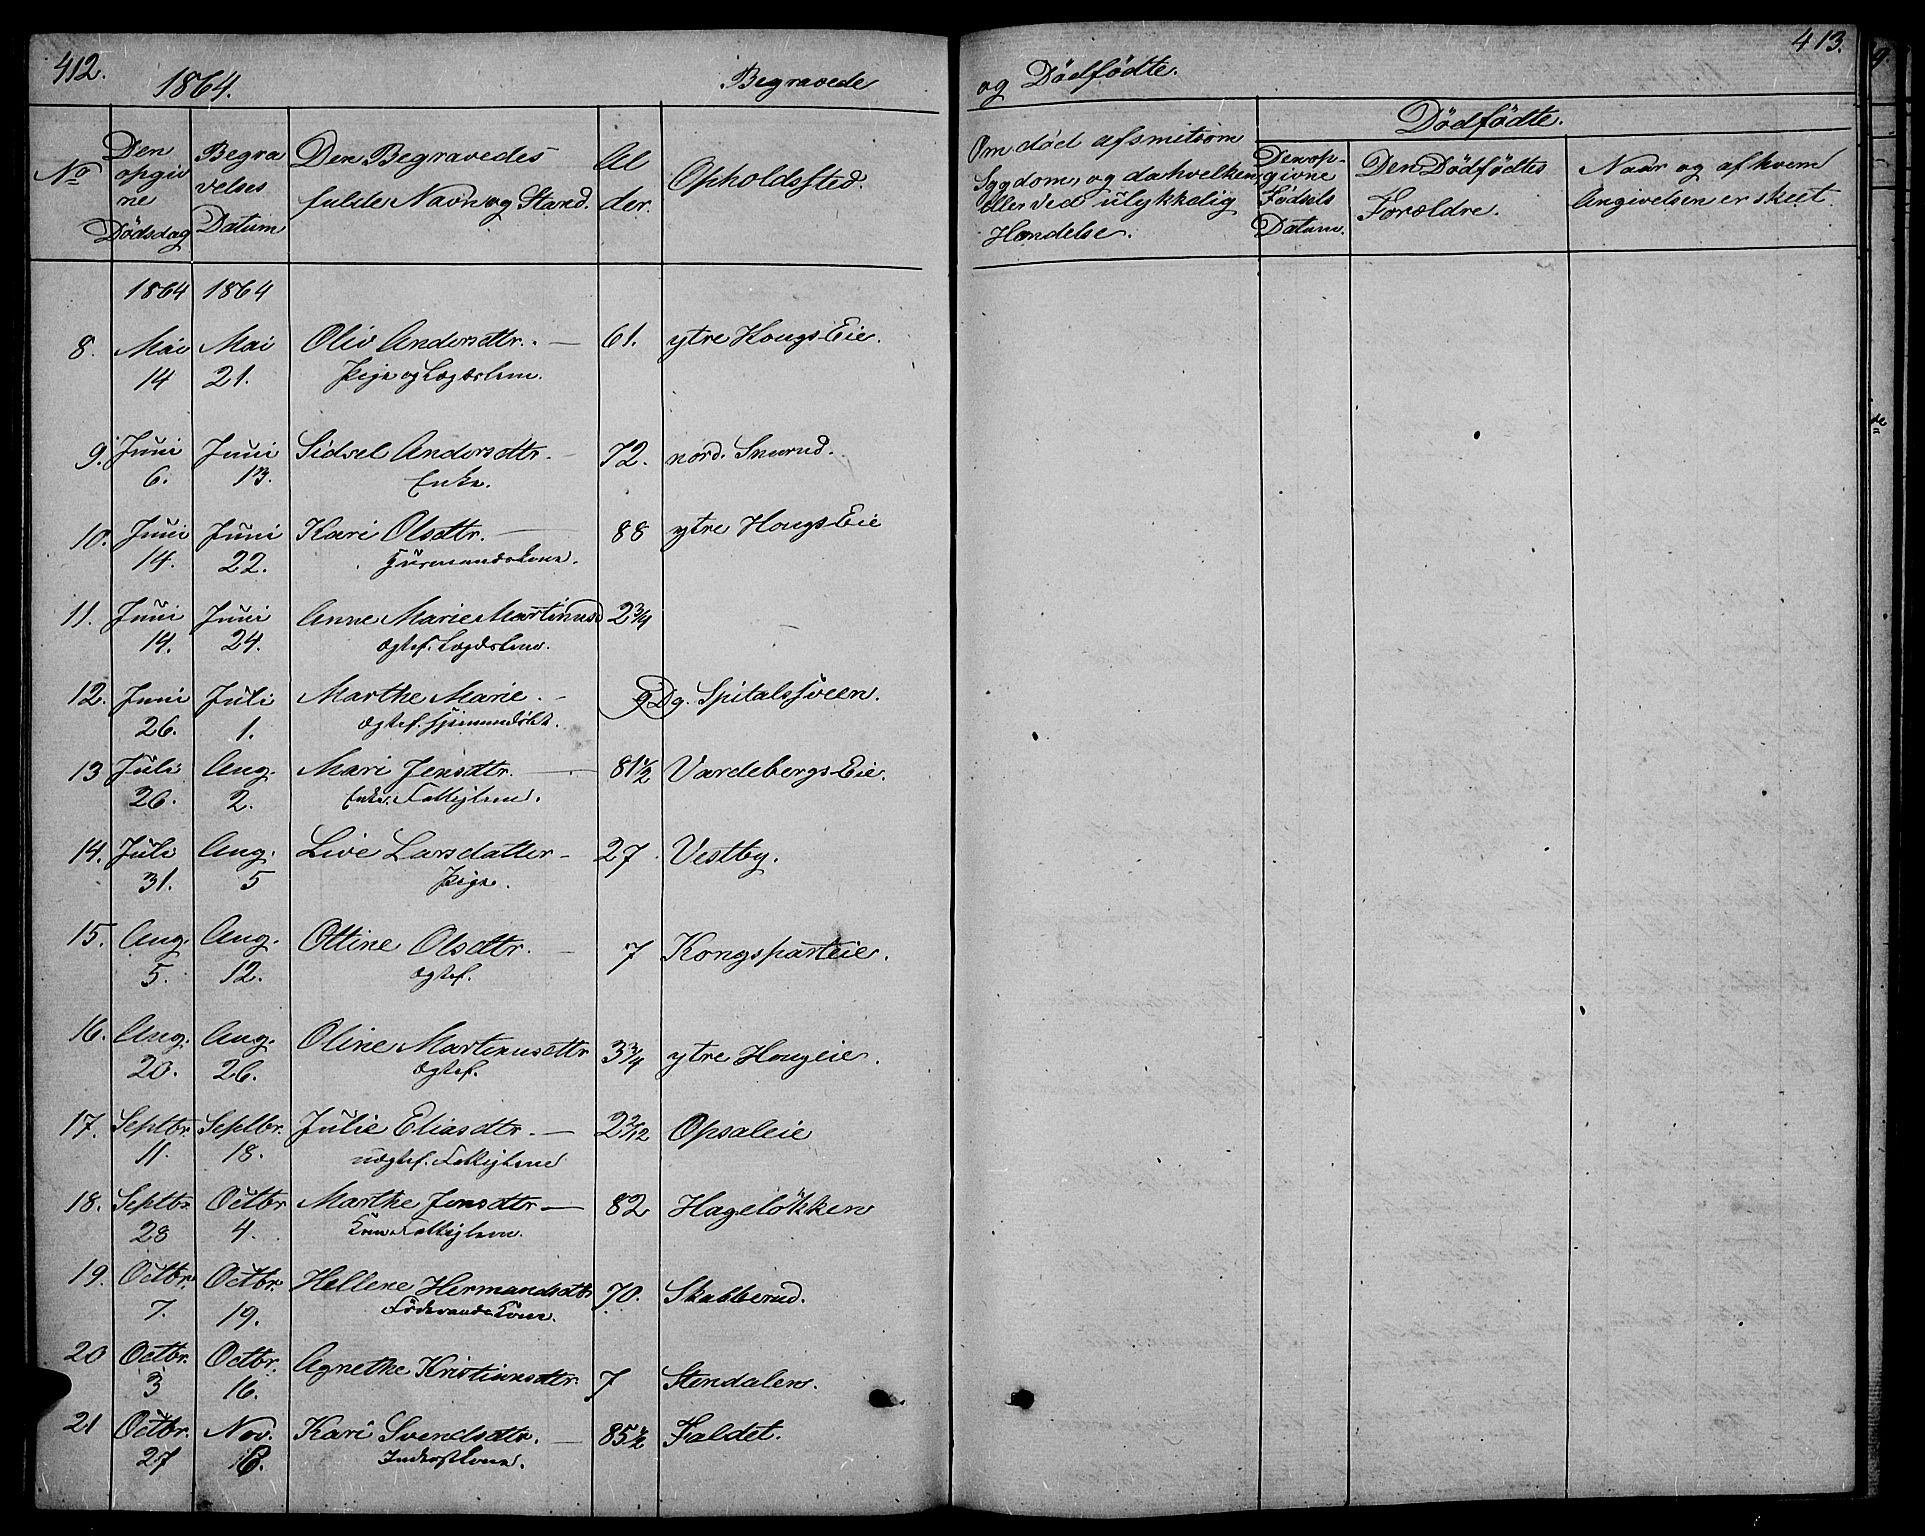 412.
1864.
Begravede
No
Den opgivne Dödsdag
Begravelses Datum
Den Begravedes fulde Navn og Stand.
Alder.
Opholdssted.
1864 1864
8. Mai 14 Mai 21. Oliv Andersdtr. — 61. ytre Hougs Eie.
Pige og Lægdslem.
9. Juni 6. Juni 13. Sidsel Andersdtr. 72. nord. Smerud.
Enke.
10. Juni 14. Juni 22. Kari Olsdtr. — 88 ytre Hougs Eie
Huusmandskone.
11. Juni 14. Juni 24. Anne Marie Martinusd 2 3/4
ægtef. Lægdslem.
12. Juni 26. Juli 1. Marthe Marie. 9 Dg. Spitalssveen.
ægtef.
13 Juli 26. Aug. 2. Mari Jensdtr. — 81 1/2 Vardebergs Eie.
Enke. Fattiglem.
14. Juli 31. Aug. 5 Live Larsdatter 27 Vestby.
Pige.
15. Aug. 5. Aug. 12. Ottine Olsdtr. — 7 Kongsparteie.
ægtef.
16. Aug. 20. Aug. 26. Oline Martinusdttr 3 3/4 ytre Hougeie.
ægtef.
17. Septbr. 11. Septbr. 18. Julie Eliasdtr. — 2 2/12 Opsaleie
uægtef. Fattiglem
18. Septbr 28 Octbr 4. Marthe Jensdtr — 82 Hagelökken
Kone. Fattiglem.
19. Octbr. 7. Octbr. 19. Hellene Hermandsdtr 70. Skabberud.
Föderaadskone.
20 Octbr. 3 Octbr. 16. Agnethe Kristiansdtr. 7 Stendalen.
21 Octbr. 27 Nov. Kari Svendsdtr. — 85 1/2 Faldet.
Inderstkone.
413.
og Dödfödte.
Om död af smitsom Sygdom, og da hvelken, eller ved ulykkelig Hændelse.
Dödfödte.
Den opgivne Födsels Datum.
Den Dödfödtes Forældre.
Naar og af hvem Angivelsen er skeet